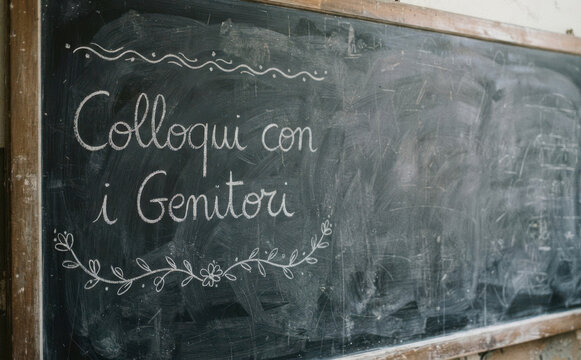 Colloqui con
i Genitori